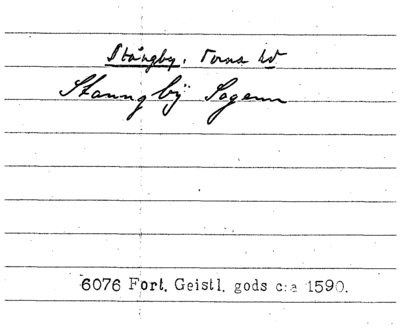 Stångby, Torna hd
Stanngbÿ Sogenn
6076 Fort. Geistl. gods c:a 1590.